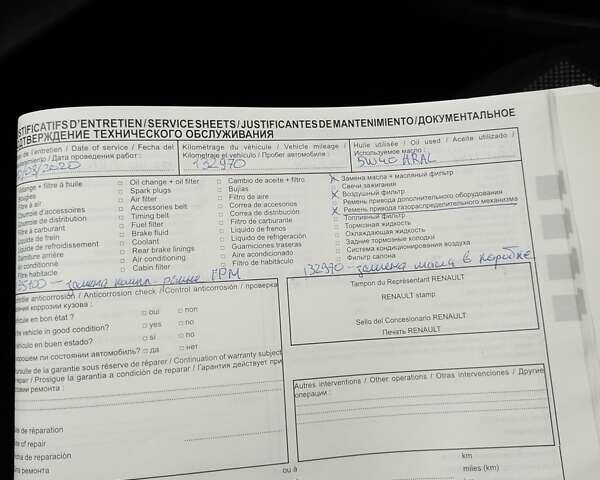 STIFICATIFS D'ENTRETIEN / SERVICE SHEETS / JUSTIFICANTES DE MANTENIMIENTO / ДОКУМЕНТАЛЬНОЕ
ДТВЕРЖДЕНИЕ ТЕХНИЧЕСКОГО ОБСЛУЖИВАНИЯ
de l'entretien / Date of service / Fecha del
/ Дата проведения работ :
/03/2020
Kilométrage du véhicule / Vehicle mileage /
Kilometraje el vehiculo / Пробег автомобиля :
132970
Huile utilisée / Oil used / Aceite utilizado /
Используемое масло :
5W40 ARAL
idange + filtre à huile
Bougies
filtre à air
Courroie d'accessoires
Courroie de distribution
Filtre à carburant
Liquide de frein
Liquide de refroidissement
Garniture arrière
Air conditionné
Filtre habitacle
Oil change + oil filter
Spark plugs
Air filter
Accessories belt
Timing belt
Fuel filter
Brake fluid
Coolant
Rear brake linings
Air conditioning
Cabin filter
Cambio de aceite + filtro
Bujías
Filtro de aire
Correa de accesorios
Correa de distribución
Filtro de carburante
Líquido de frenos
Líquido de refrigeración
Guarniciones traseras
Aire acondicionado
Filtro de habitáculo
Замена масла + масляный фильтр
Свечи зажигания
Воздушный фильтр
Ремень привода дополнительного оборудования
Ремень привода газораспределительного механизма
Топливный фильтр
Тормозная жидкость
Охлаждающая жидкость
Задние тормозные колодки
Система кондиционирования воздуха
Фильтр салона
замена компл. ремня ГРМ
132970 - замена масла в коробке
anticorrosion / Anticorrosion check / Control anticorrosión / проверка
ния коррозии кузова :
en bon état ? oui non
vehicle in good condition? yes no
vehículo en buen estado? sí no
хорошем ли состоянии автомобиль? да нет
suite de la garantie sous réserve de réparer / Continuation of warranty subject
repair / Prosigue la garantía a condición de reparar / Гарантия действует при
ремонта :
Tampon du Représentant RENAULT
RENAULT stamp
Sello del Concesionario RENAULT
Печать RENAULT
Autres interventions / Other operations / Otras intervenciones / Другие
операции :
de réparation
of repair
de reparación
ремонта
ou à
km
miles (km)
km